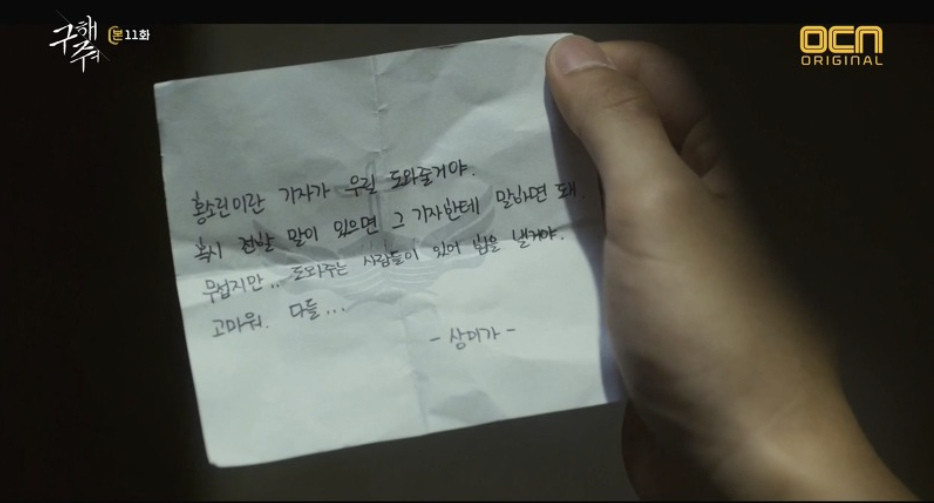 구해줘
본 11화
OCN
ORIGINAL
황소린이란 기자가 우릴 도와줄거야.
혹시 전할 말이 있으면 그 기자한테 말하면 돼
무섭지만.. 도와주는 사람들이 있어 힘을 낼거야.
고마워. 다들...
- 상미가 -